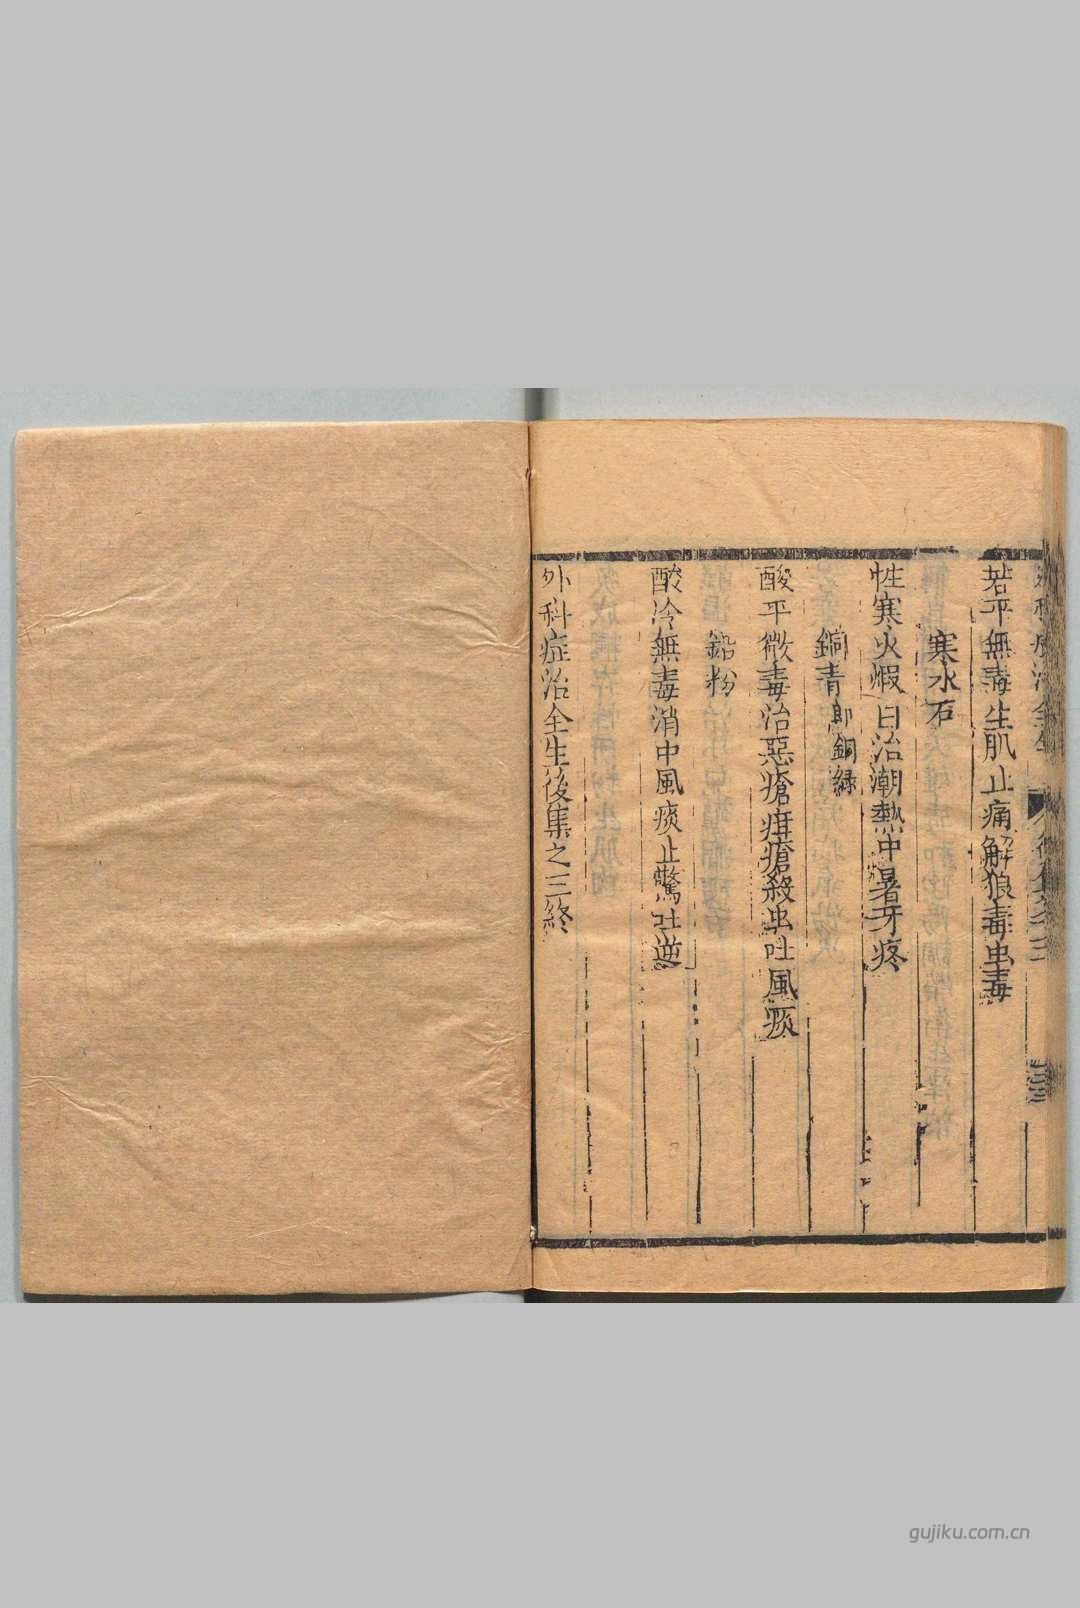 苦平無毒生肌止痛解狼毒虫毒
寒水石
性寒火煆日治潮熱中暑牙疼
銅青即銅緑
酸平微毒治惡瘡疳瘡殺虫吐風痰
鉛粉
酸冷無毒消中風痰止驚吐逆
外科症治全生後集之三終
gujiku.com.cn